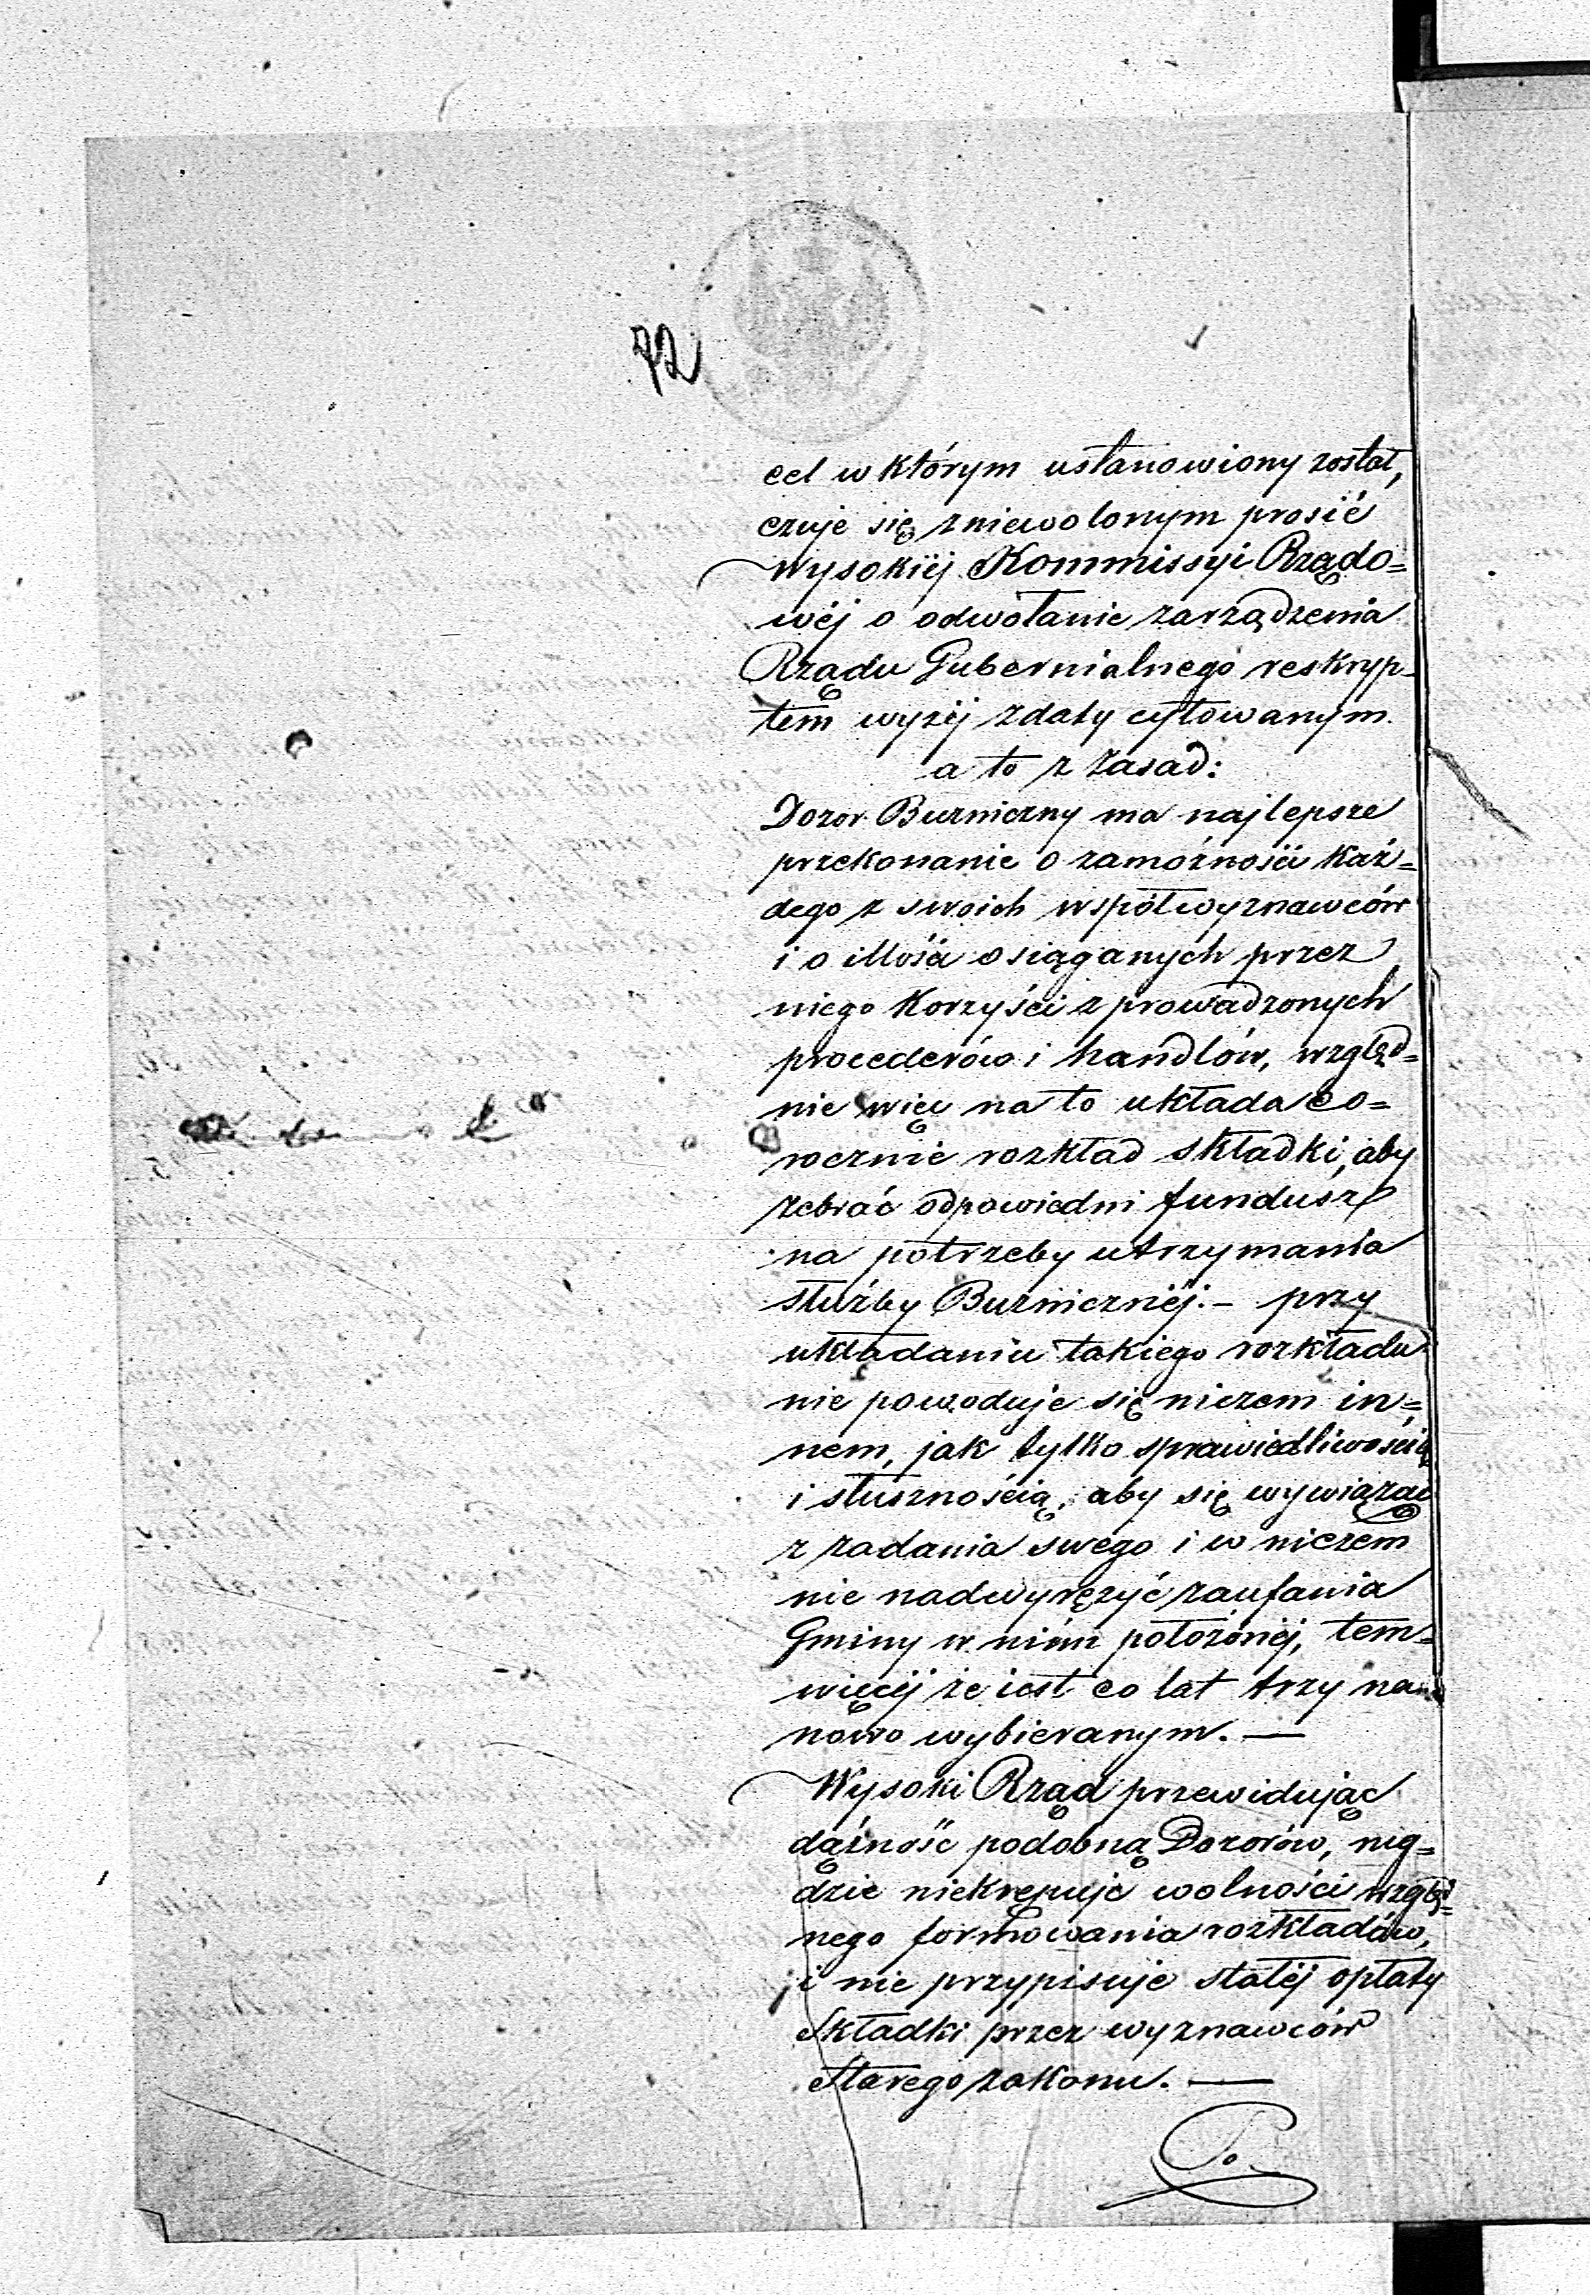 72
cel w którym ustanowiony został,
czuje się zniewolonym prosić
Wysokiéj Kommissyi Rządo=
wéj o odwołanie zarządzenia
Rządu Gubernialnego reskryp=
tem wyżéj z daty cytowanym
a to z zasad:
Dozor Bużniczny ma najlepsze
przekonanie o zamożności każ=
dego z swoich współwyznawców
i o illości osiąganych przez
niego Korzyści z prowadzonych
procederów i handlów, względ=
nie więc na to układa co=
rocznie rozkład składki, aby
zebrać odpowiedni fundusz
na potrzeby utrzymania
służby Bużnicznéj.- przy
układaniu takiego rozkładu
nie powoduje się niczem in=
nem, jak tylko sprawiedliwością
i słusznością, aby się wywiązać
z zadania swego i w niczem
nie nadwyrężyć zaufania
Gminy w nim położonéj, tem=
więcéj że jest co lat trzy na
nowo wybieranym. —
Wysoki Rząd przewidując
dążność podobną Dozorów, nig=
dzie niekrępuje wolności
nego formowania rozkładów,
i nie przypisuje stałéj opłaty
Składki przez wyznawców
Starego zakonu. —
Po